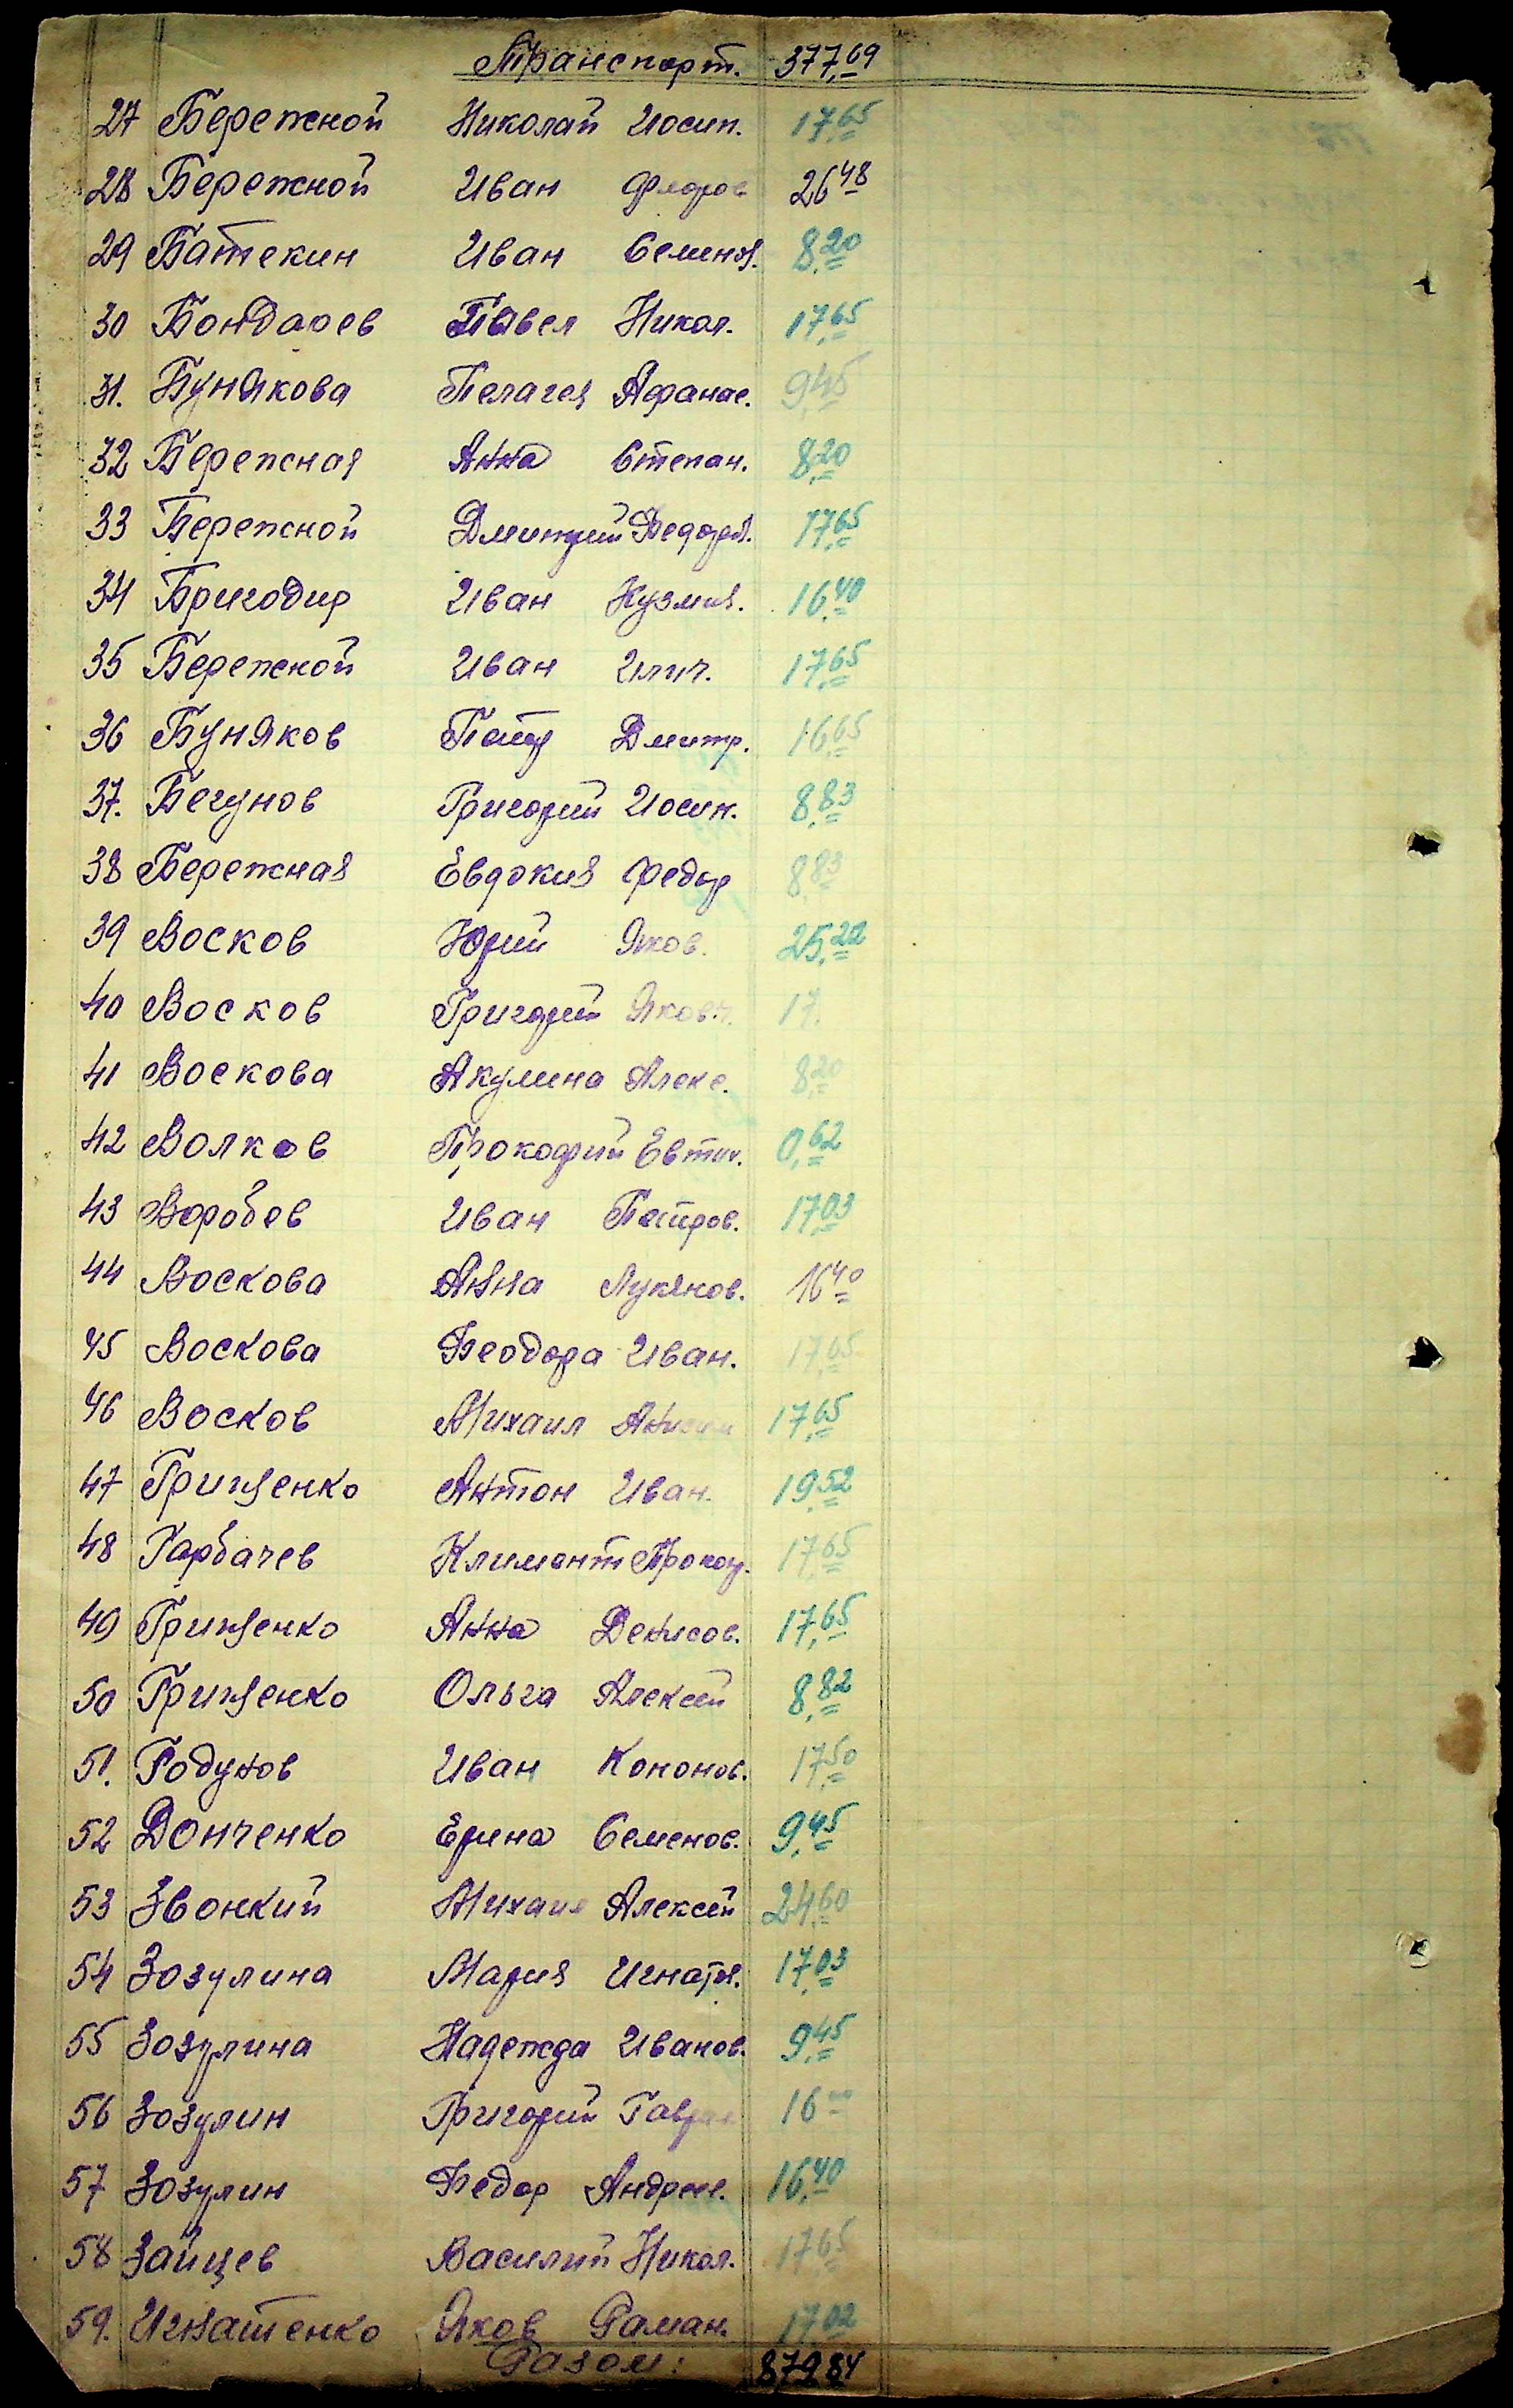 Транспорт. 377,69
27 Бережной Николай Иосип. 17,65
28 Бережной Иван Федоров 26 48
29 Батекин Иван Семинов. 8,20
30 Бондарев Павел Никол. 17,65
31. Бунякова Пелагея Афанас. 9,45
32 Бережная Анна Степан. 8,20
33 Бережной Дмитрий Федоров. 17,65
34 Бригодир Иван Кузмич. 16,40
35 Бережной Иван Илич. 17,65
36 Буняков Петр Дмитр. 16,65
37. Бегунов Григорий Иосип. 8,83
38 Бережная Евдокия Федор 8,83
39 Восков Юрий Яков. 25,22
40 Восков Григорий Яковл. 17.
41 Воскова Акулина Алекс. 8,20
42 Волков Прокофий Евтих. 0,62
43 Воробев Иван Петров. 17,03
44 Воскова Анна Лукянов. 16 40
45 Воскова Феодора Иван. 17,65
46 Восков Михаил Анисим 17,65
47 Грищенко Антон Иван. 19,52
48 Гарбачев Климант Прокоф. 17,65
49 Грищенко Анна Денисов. 17,65
50 Грищенко Ольга Алексей 8,82
51. Годунов Иван Кононов. 17,50
52 Донченко Ерина Семенов. 9,45
53 Звонкий Михаил Алексей 24,60
54 Зозулина Мария Игнатов. 17,03
55 Зозулина Надежда Иванов. 9,45
56 Зозулин Григорий 16
57 Зозулин Федор Андрее. 16,40
58 Зайцев Василий Никол. 17,65
59. Игнатенко Яков Раман. 17,02
Разом: 879 84